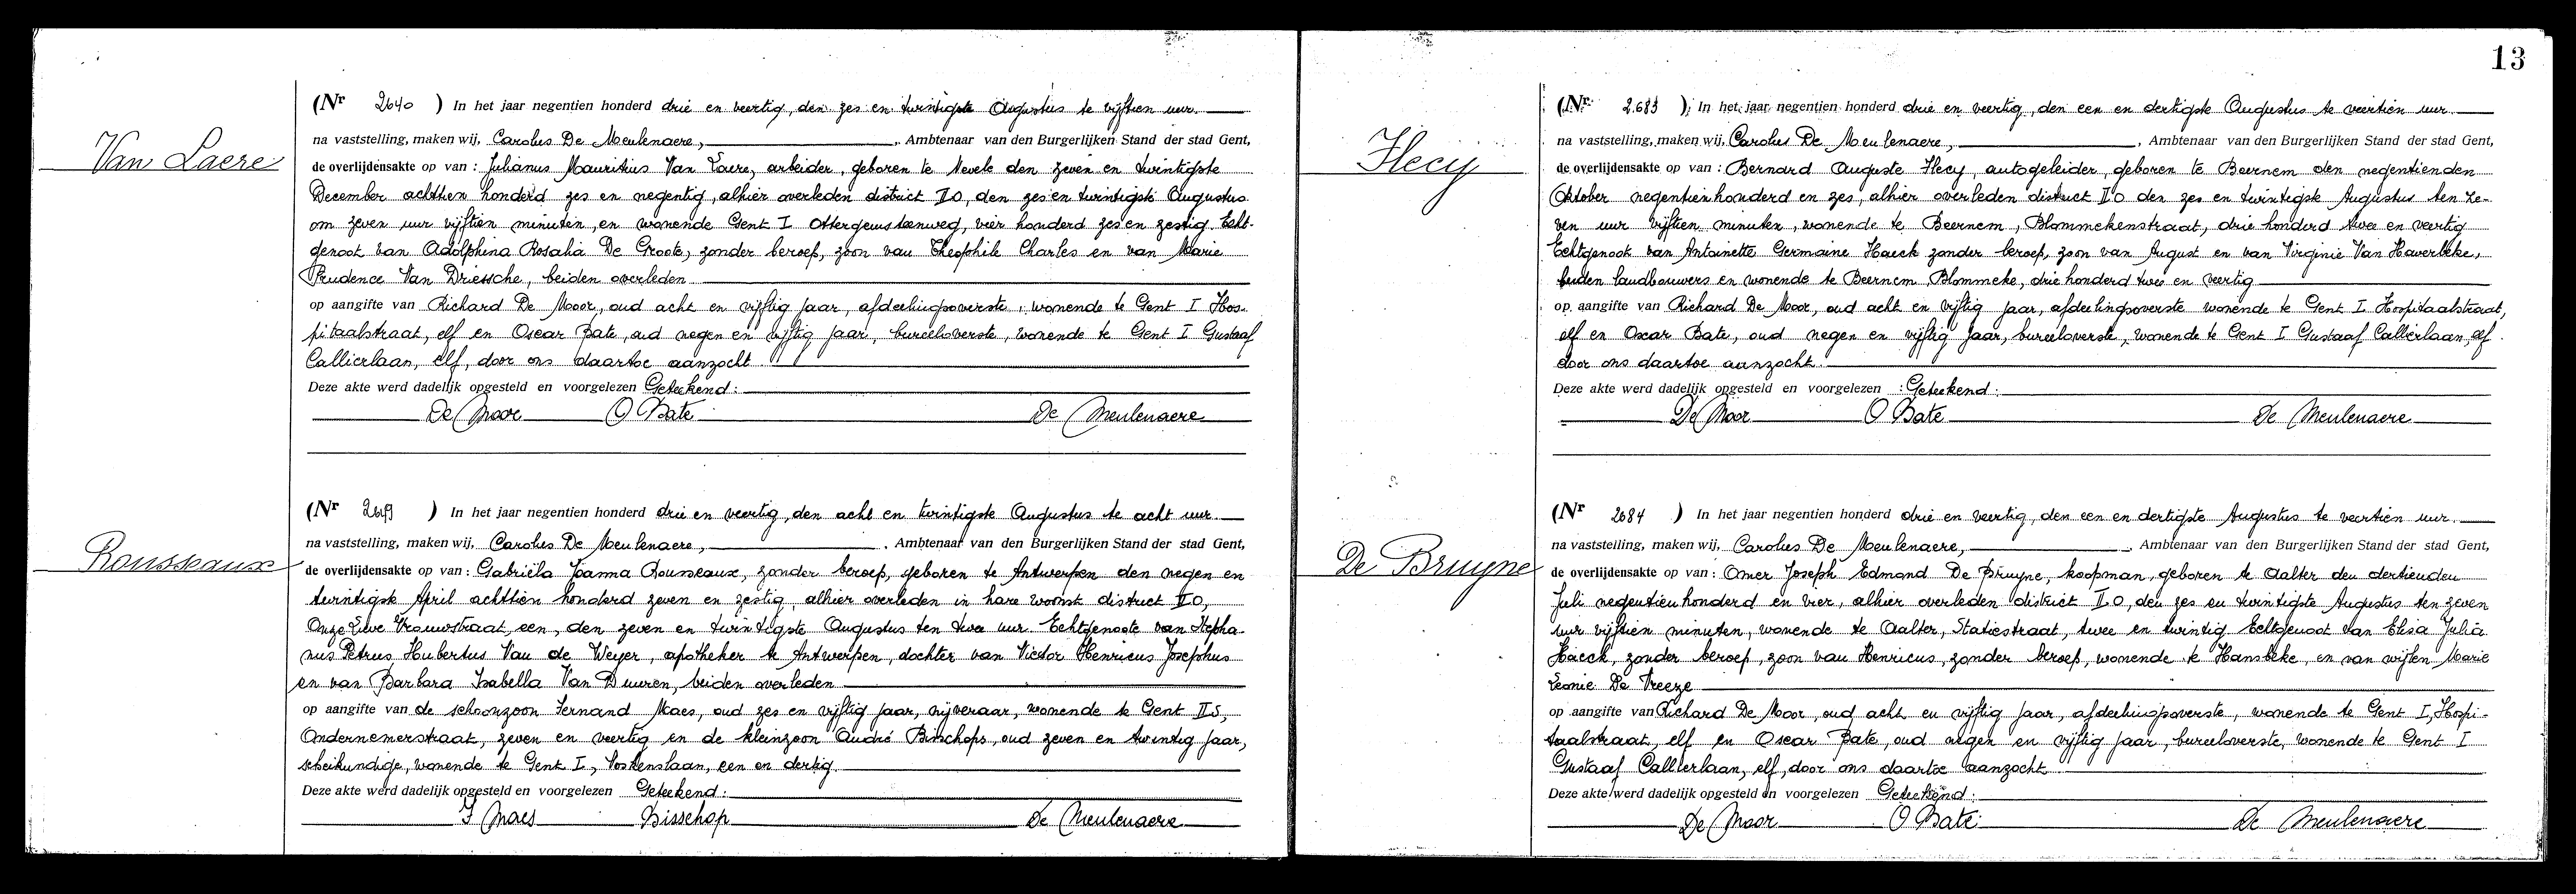 13
Van Laere
(Nr 2640 ) In het jaar negentien honderd drie en veertig, den zes en twintigste Augustus te vijftien uur.
na vaststelling, maken wij, Carolus De Meulenaere, , Ambtenaar van den Burgerlijken Stand der stad Gent,
de overlijdensakte op van : Julianus Mauritius Van Laere, arbeider, geboren te Nevele den zeven en twintigste
December achttien honderd zes en negentig, alhier overleden district II0, den zes en twintigste Augustus
om zeven uur vijftien minuten, en wonende Gent I Ottergemsteenweg, vier honderd zes en zestig. Echt-
genoot van Adolphina Rosalia De Groote, zonder beroep, zoon van Theophile Charles en van Marie
Prudence Van Driessche, beiden overleden
op aangifte van Richard De Moor, oud acht en vijftig jaar, afdeelingsoverste, wonende te Gent I Hos-
pitaalstraat, elf en Oscar Bate, oud negen en vijftig jaar, bureeloverste, wonende te Gent I Gustaaf
Callierlaan, elf, door ons daartoe aanzocht.
Deze akte werd dadelijk opgesteld en voorgelezen Geteekend :
De Moor O Bate De Meulenaere
Rousseaux
(Nr ) In het jaar negentien honderd drie en veertig, den acht en twintigste Augustus te acht uur.
na vaststelling, maken wij, Carolus De Meulenaere, , Ambtenaar van den Burgerlijken Stand der stad Gent,
de overlijdensakte op van : Gabriëla Joanna Rousseaux, zonder beroep, geboren te Antwerpen den negen en
twintigste April achttien honderd zeven en zestig, alhier overleden in hare woonst district II0,
Onze Lieve Vrouwstraat, een, den zeven en twintigste Augustus ten twee uur. Echtgenoote van Stepha-
nus Petrus Hubertus Van de Weyer, apotheker te Antwerpen, dochter van Victor Henricus Josephus
en van Barbara Isabella Van Duuren, beiden overleden
op aangifte van de schoonzoon Fernand Maes, oud zes en vijftig jaar, nijveraar, wonende te Gent IIS,
Ondernemerstraat, zeven en veertig en de kleinzoon André Bisschops, oud zeven en twintig jaar,
scheikundige, wonende te Gent I, Voskenslaan, een en dertig.
Deze akte werd dadelijk opgesteld en voorgelezen Geteekend :
F Maes Bisschop De Meulenaere
Hecy
(Nr. 2683 ) In het jaar negentien honderd drie en veertig, den een en dertigste Augustus te veertien uur.
na vaststelling, maken wij, Carolus De Meulenaere, , Ambtenaar van den Burgerlijken Stand der stad Gent,
de overlijdensakte op van : Bernard Auguste Hecy, autogeleider, geboren te Beernem den negentienden
Oktober negentienhonderd en zes, alhier overleden district II0 den zes en twintigste Augustus ten ze-
ven uur vijftien minuten, wonende te Beernem, Blommekenstraat, drie honderd twee en veertig
Echtgenoot van Antoinette Germaine Haeck zonder beroep, zoon van August en van Virginie Van Haverbeke,
beiden landbouwers en wonende te Beernem Blommeke, drie honderd twee en veertig
op aangifte van Richard De Moor, oud acht en vijftig jaar, afdeelingsoverste wonende te Gent I Hospitaalstraat,
elf en Oscar Bate, oud negen en vijftig jaar, bureeloverste, wonende te Gent I Gustaaf Callierlaan, elf
door ons daartoe aanzocht.
Deze akte werd dadelijk opgesteld en voorgelezen : Geteekend :
De Moor O Bate De Meulenaere
De Bruyne
(Nr 2684 ) In het jaar negentien honderd drie en veertig, den een en dertigste Augustus te veertien uur.
na vaststelling, maken wij, Carolus De Meulenaere, , Ambtenaar van den Burgerlijken Stand der stad Gent,
de overlijdensakte op van : Omer Joseph Edmond De Bruyne, koopman, geboren te Aalter den dertienden
Juli negentienhonderd en vier, alhier overleden district II0, den zes en twintigste Augustus ten zeven
uur vijftien minuten, wonende te Aalter, Statiestraat, twee en twintig Echtgenoot van Elisa Julia
Haeck, zonder beroep, zoon van Henricus, zonder beroep, wonende te Hansbeke, en van wijlen Marie
Leonie De Vreeze
op aangifte van Richard De Moor, oud acht en vijftig jaar, afdeelingsoverste, wonende te Gent I, Hospi-
taalstraat, elf en Oscar Bate, oud negen en vijftig jaar, bureeloverste, wonende te Gent I
Gustaaf Callierlaan, elf, door ons daartoe aanzocht.
Deze akte werd dadelijk opgesteld en voorgelezen Geteekend :
De Moor O Bate De Meulenaere